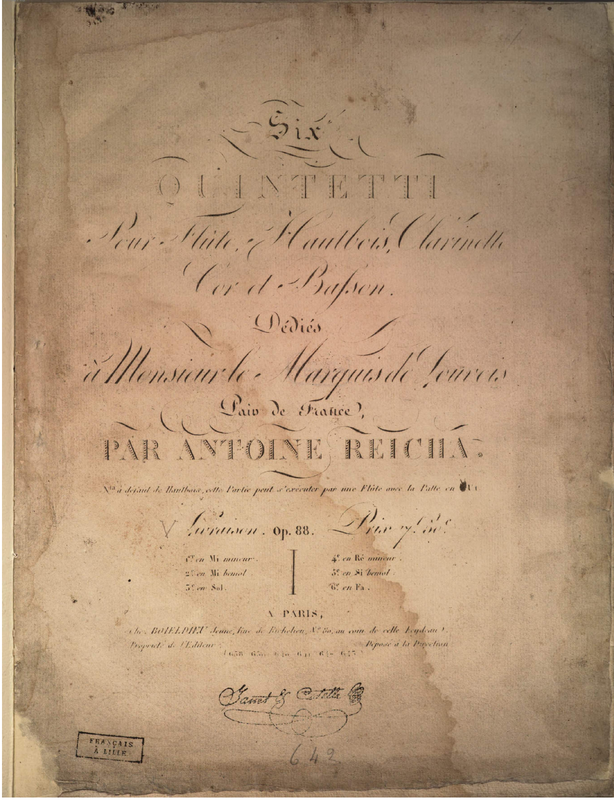 Six
QUINTETTI
Pour Flûte, Hautbois, Clarinette
Cor et Baſson.
Dédiés
à Monsieur le Marquis de Louvois
Pair de France,
PAR ANTOINE REICHA.
Nta. à défaut de Hautbois, cette Partie peut s'exécuter par une Flûte avec la Patte en UT.
V Livraison. Op. 88. Prix
1er. en Mi mineur. 4e. en Ré mineur.
2e. en Mi bemol 5e. en Si bemol.
3e. en Sol. 6e. en Fa.
A PARIS,
Chez BOIELDIEU jeune, Rue de Richelieu, No. 80, au coin de celle Feydeau.
Propriété de l'Editeur. Déposé à la Direction
Janet & Cotelle
FRANÇAIS
À LILLE
642